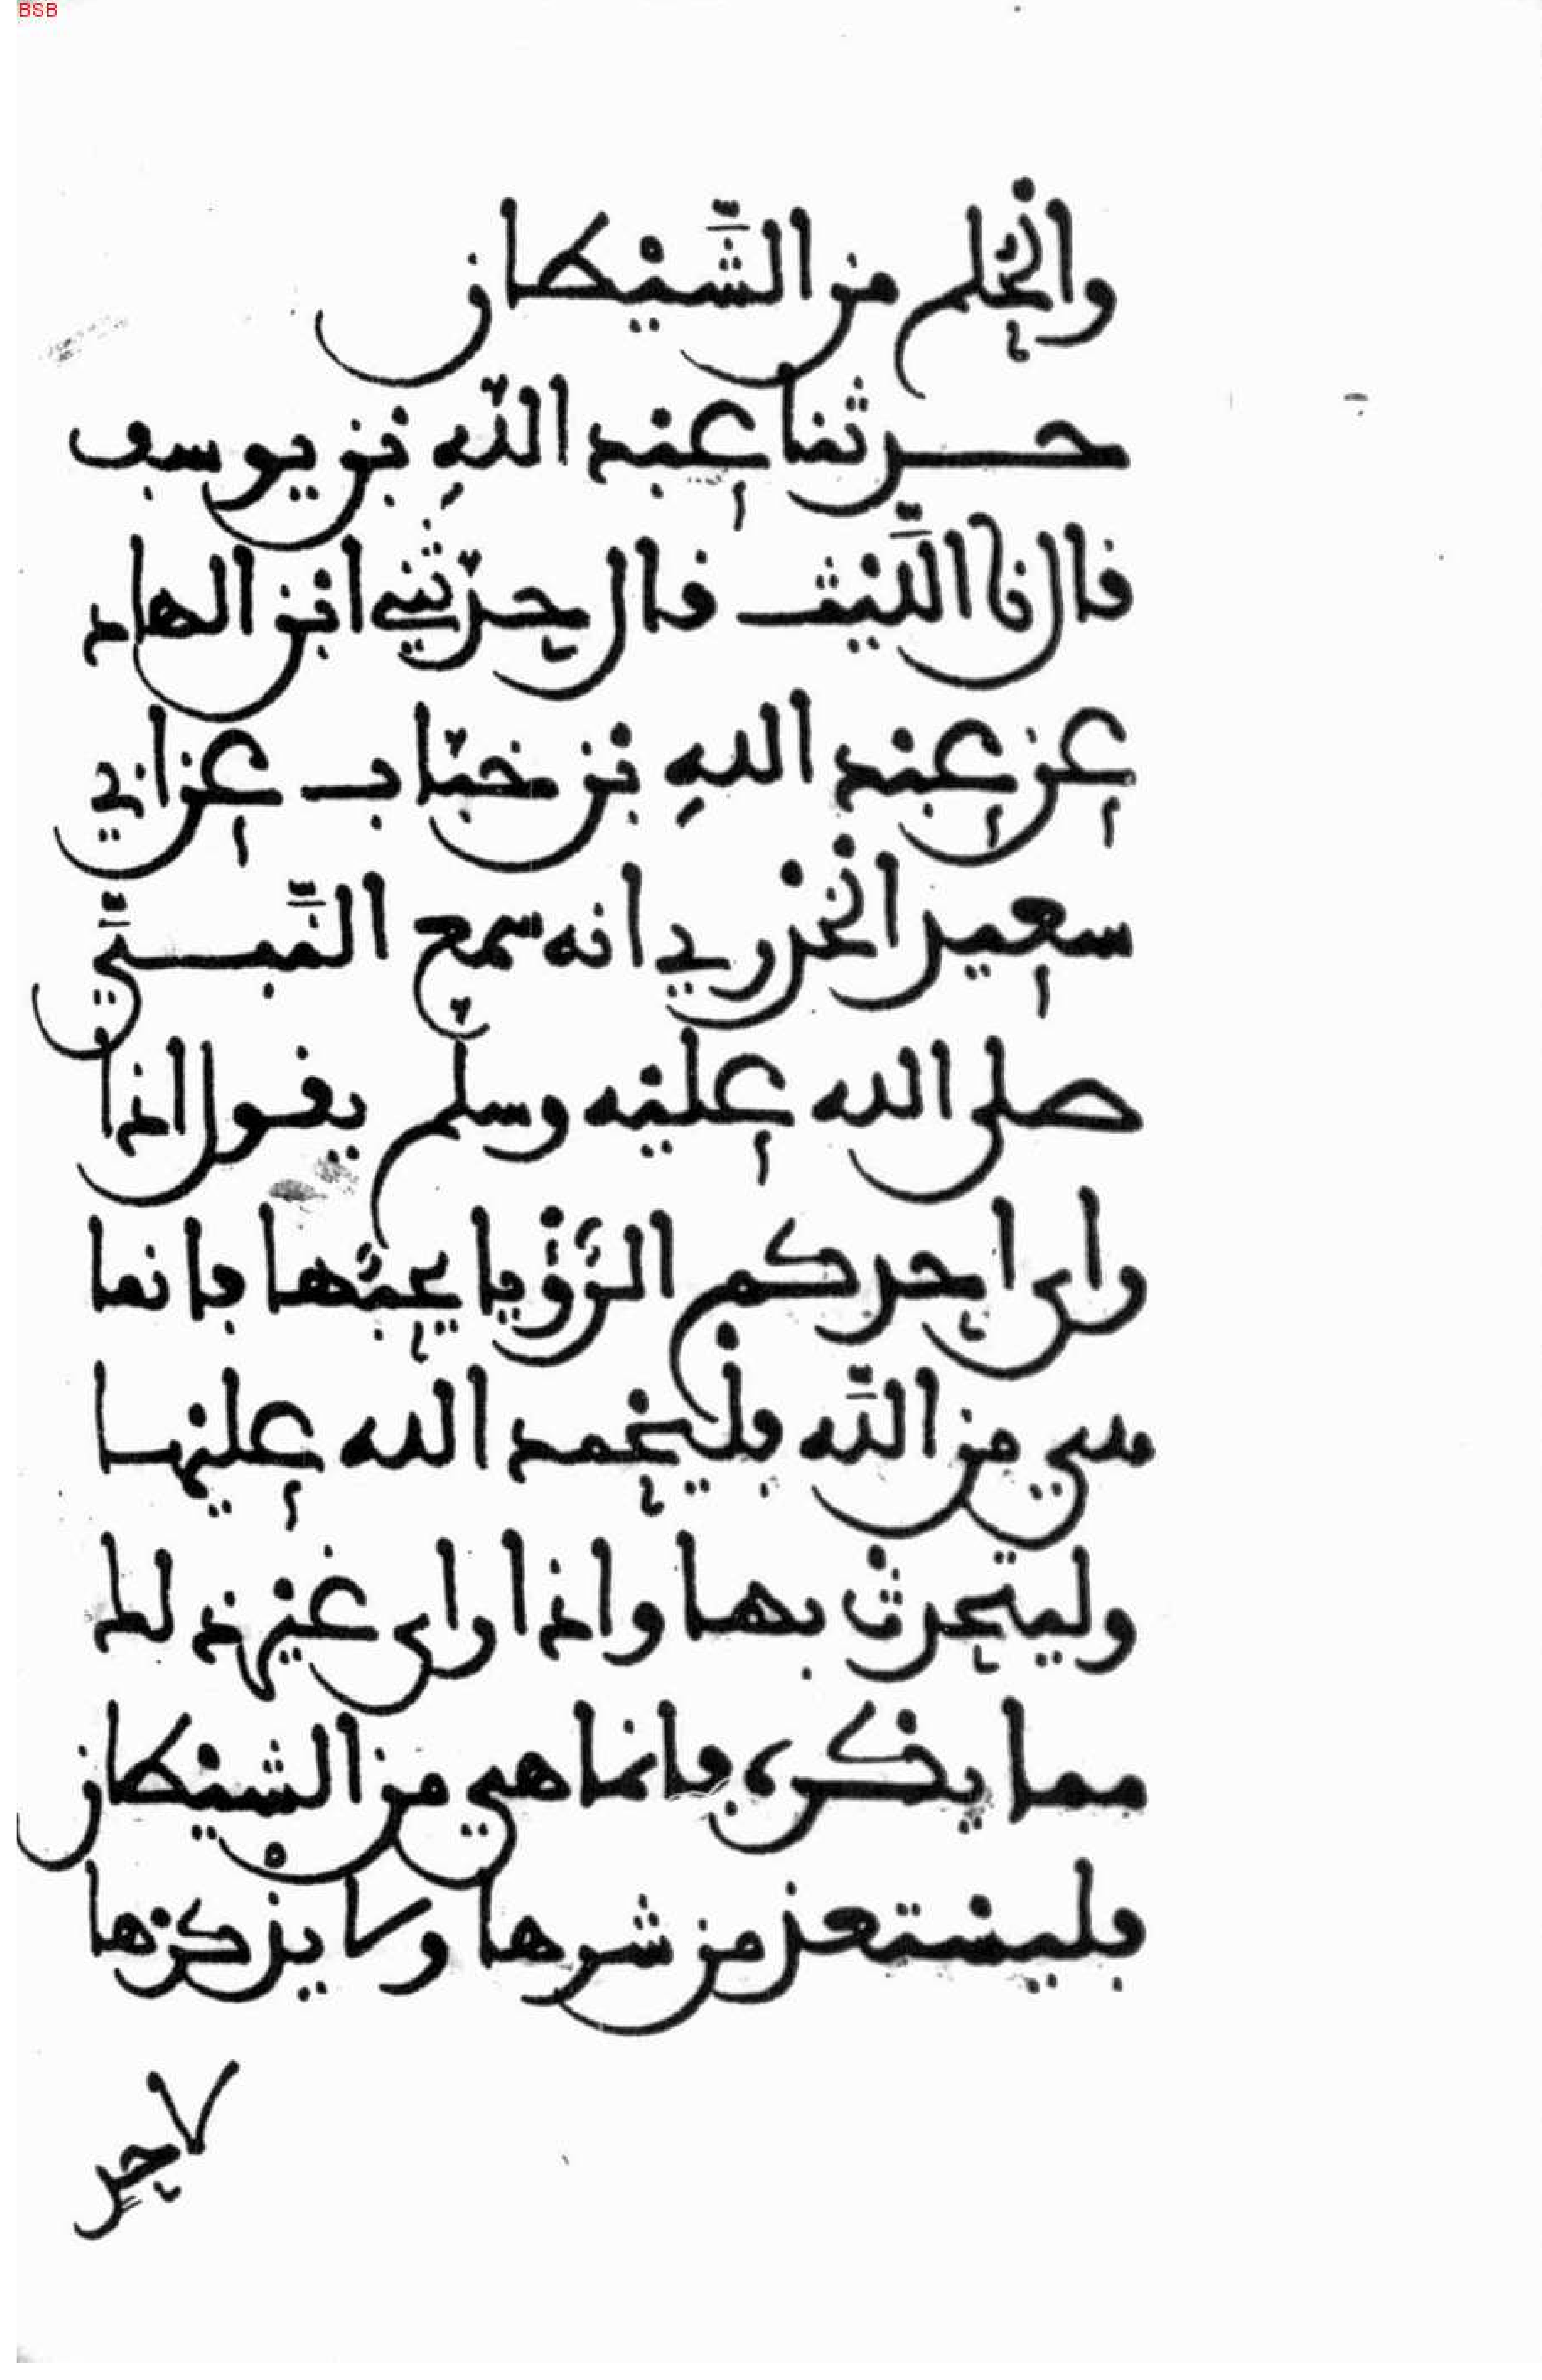 BSB
والحلم من الشَّيْطان
حدثنا عبد اللّهِ بن يوسف
قال نا اللَّيْث قال حدّثني ابن الهاد
عن عبد اللهِ بن خبّاب عن ابي
سعيد الخدْري انه سمع النَّبيَّ
صلى الله عليْه وسلّم يقول اذا
راى احدكم الرُّؤْيا يحبُّها فانما
هي من اللَّه فلْيحْمد الله عليْها
وليتحدثْ بها واذا راى غيْر ذلك
مما يكره فانما هي من الشيْطان
فليسْتعذ من شرها ولا يذْكرْها
لاحد